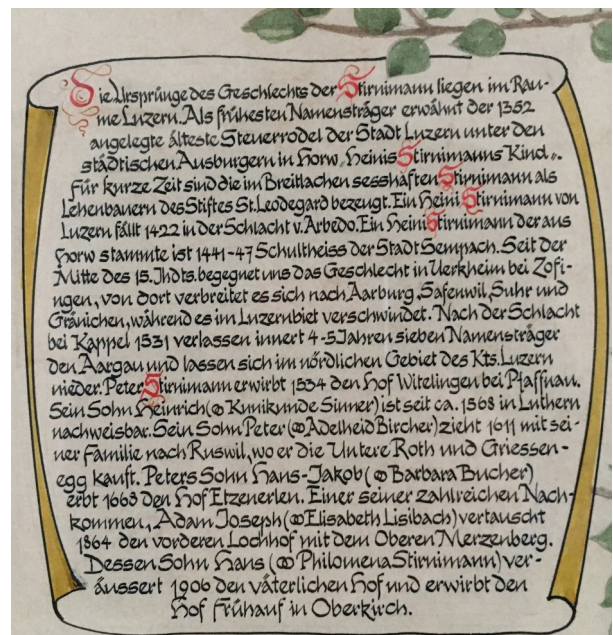 Die Ursprünge des Geschlechts der Stirnimann liegen im Rau-
me Luzern. Als frühesten Namensträger erwähnt der 1352
angelegte älteste Steuerrodel der Stadt Luzern unter den
städtischen Ausburgern in Horw „Heinis Stirnimanns Kind“.
Für kurze Zeit sind die im Breitlachen sesshaften Stirnimann als
Lehenbauern des Stiftes St. Leodegard bezeugt. Ein Heini Stirnimann von
Luzern fällt 1422 in der Schlacht v. Arbedo. Ein Heini Stirnimann der aus
Horw stammte ist 1441-47 Schultheiss der Stadt Sempach. Seit der
Mitte des 15. Jhdts. begegnet uns das Geschlecht in Uerkheim bei Zofi-
ngen, von dort verbreitet es sich nach Aarburg, Safenwil, Suhr und
Gränichen, während es im Luzernbiet verschwindet. Nach der Schlacht
bei Kappel 1531 verlassen innert 4-5 Jahren sieben Namensträger
den Aargau und lassen sich im nördlichen Gebiet des Kts. Luzern
nieder. Peter Stirnimann erwirbt 1534 den Hof Witelingen bei Pfaffnau.
Sein Sohn Heinrich (⚭ Kunikunde Sinner) ist seit ca. 1568 in Luthern
nachweisbar. Sein Sohn Peter (⚭ Adelheid Bircher) zieht 1611 mit sei-
ner Familie nach Ruswil, wo er die Untere Roth und Griessen-
egg kauft. Peters Sohn Hans-Jakob (⚭ Barbara Bucher)
erbt 1663 den Hof Etzenerlen. Einer seiner zahlreichen Nach-
kommen, Adam Joseph (⚭ Elisabeth Lisibach) vertauscht
1864 den vorderen Lochhof mit dem Oberen Merzenberg.
Dessen Sohn Hans (⚭ Philomena Stirnimann) ver-
äussert 1906 den väterlichen Hof und erwirbt den
Hof Frühauf in Oberkirch.